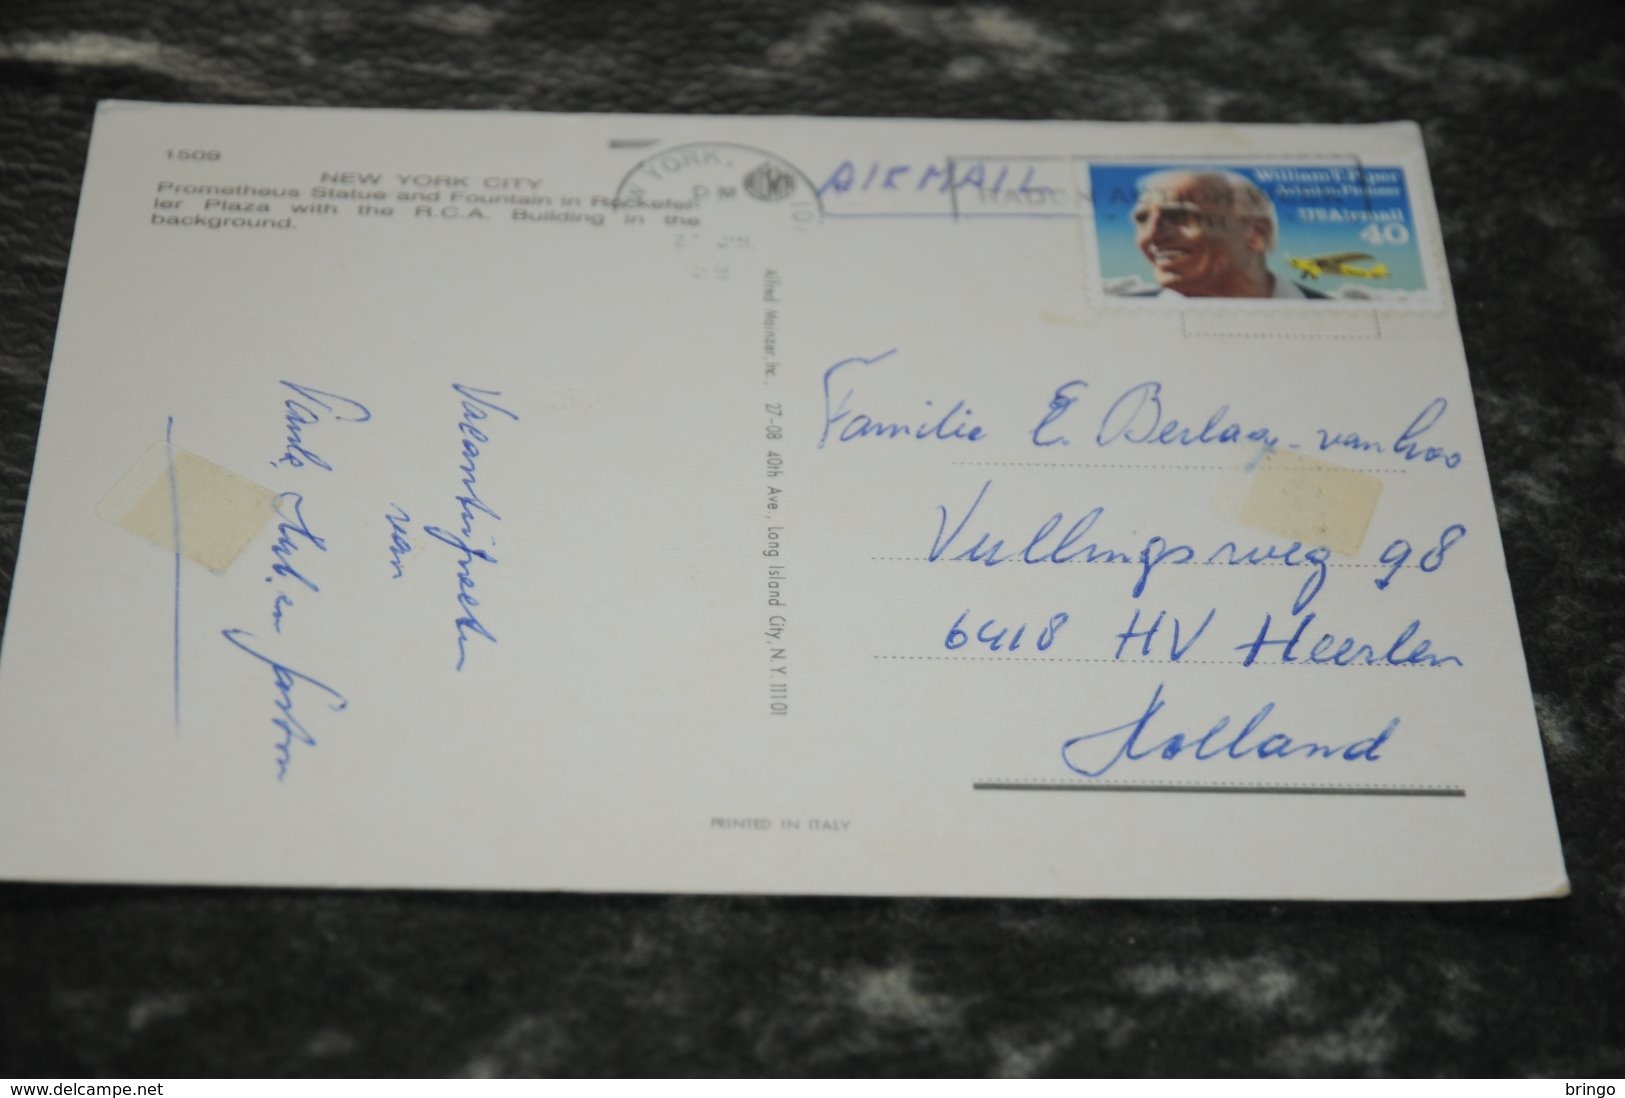 1509
NEW YORK CITY
Prometheus Statue and Fountain in Rockefel-
ler Plaza with the R.C.A. Building in the
background.
YORK,
AIRMAIL
William T. Piper
Aviation Pioneer
USAirmail
40
Alfred Mainzer, Inc., 27-08 40th Ave., Long Island City, N.Y. 11101
Vacantiegroeten
van
en Gaston
Familie E. Berlage-van Loo
Vullingsweg 98
6418 HV Heerlen
Holland
PRINTED IN ITALY
www.delcampe.net
bringo